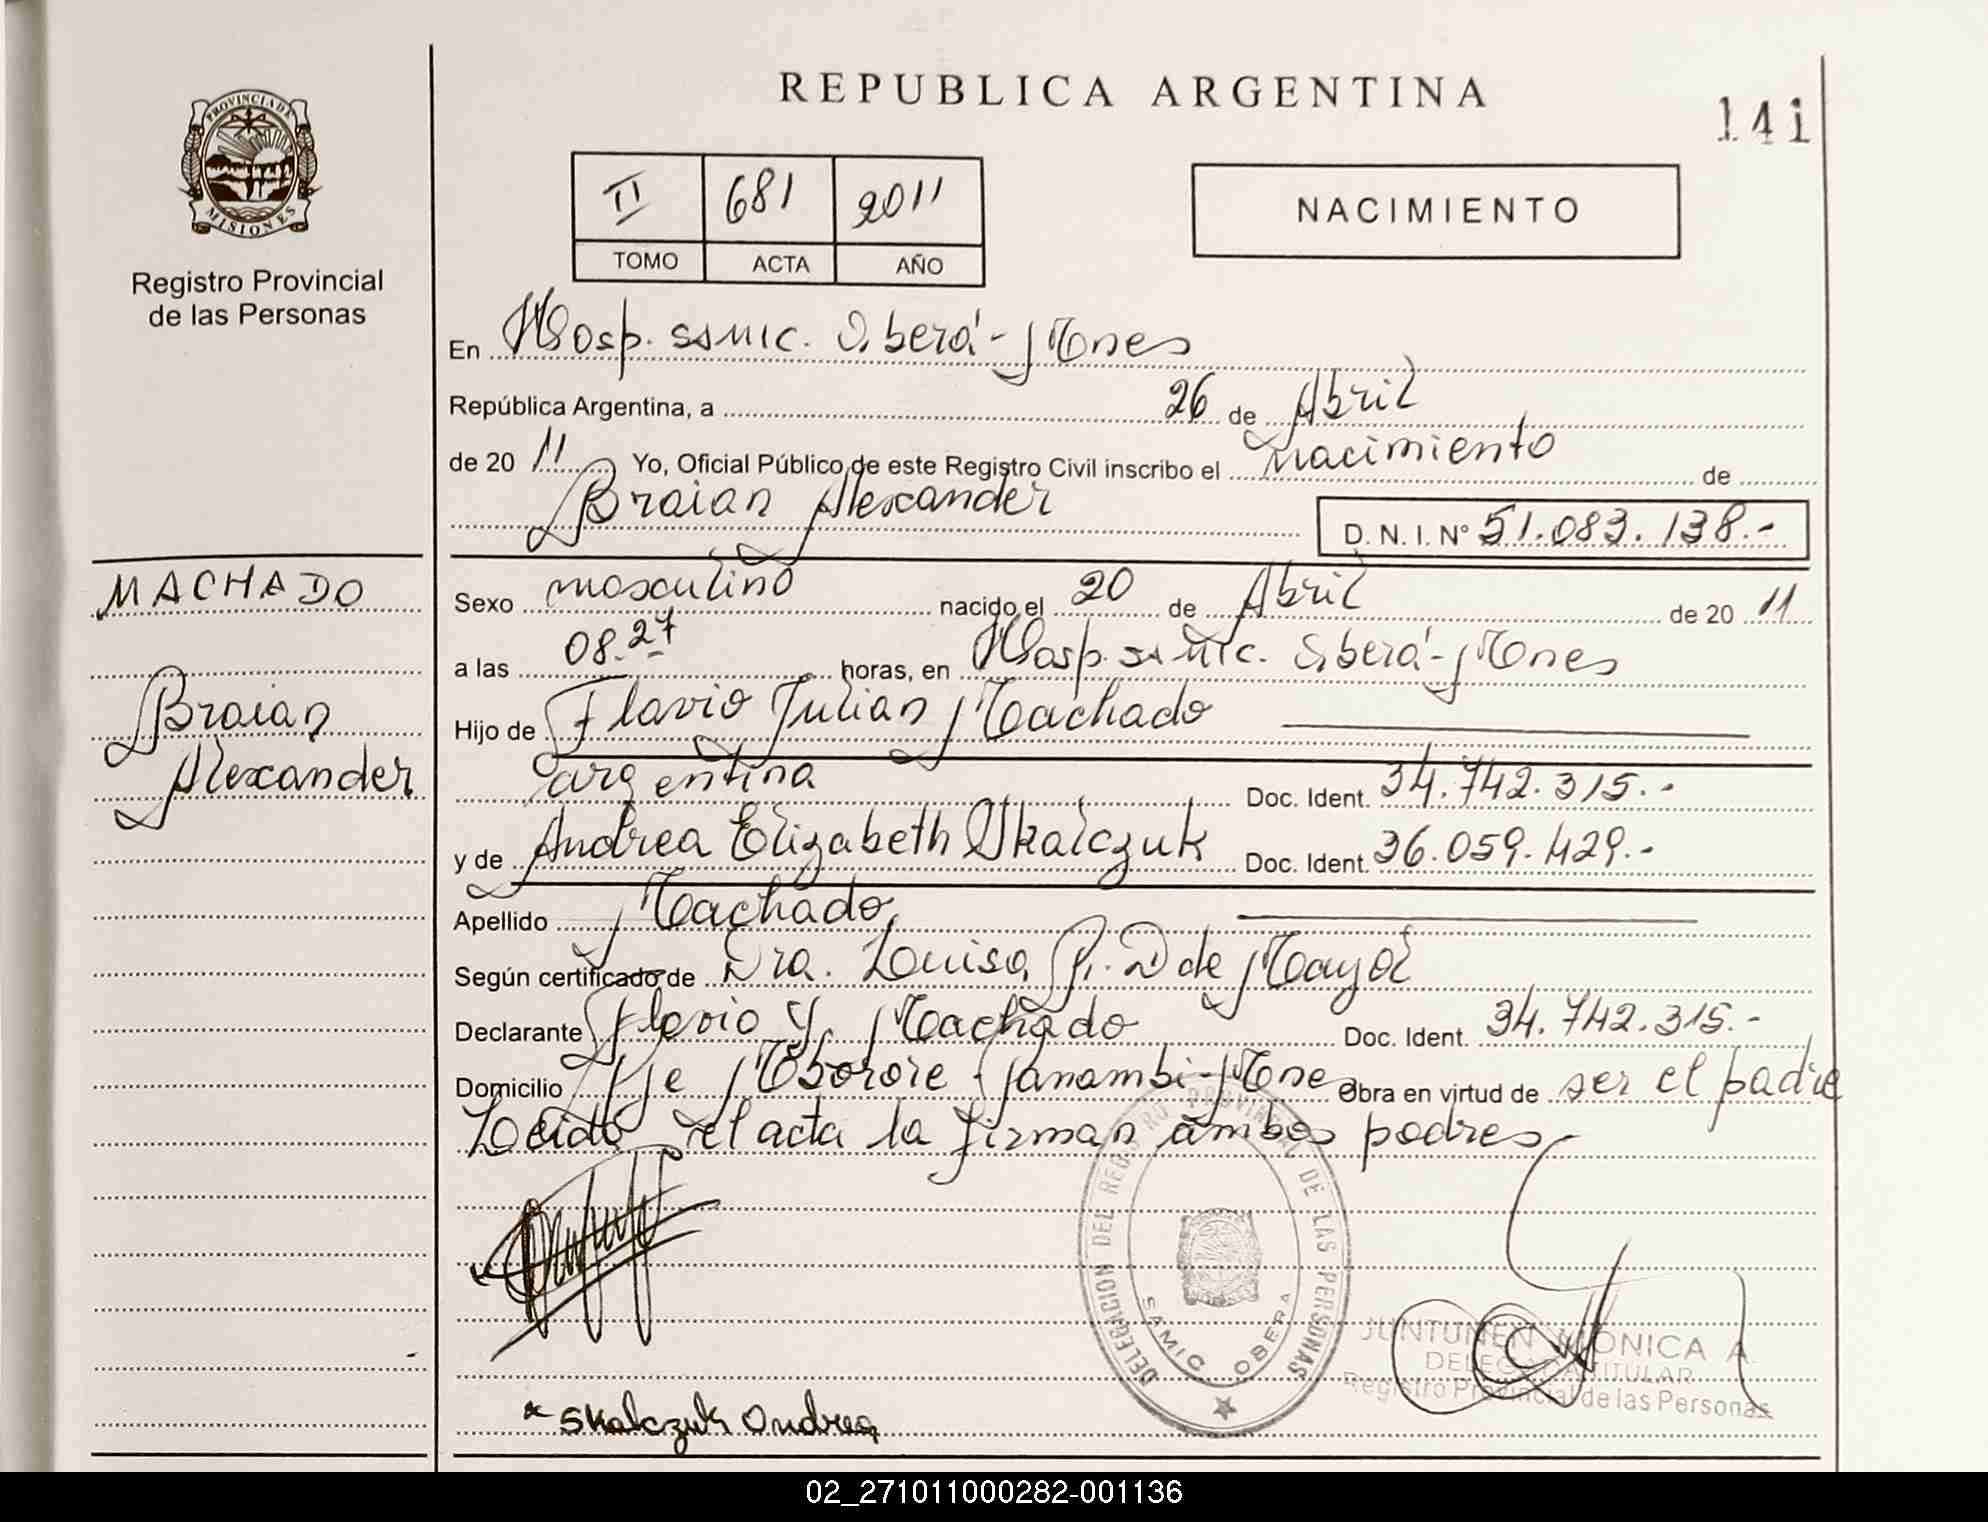 REPUBLICA ARGENTINA
141
PROVINCIA DE
MISIONES
Registro Provincial
de las Personas
II 681 2011
TOMO ACTA AÑO
NACIMIENTO
En Hosp. SAMIC. Oberá - Mnes
República Argentina, a 26 de Abril
de 2011 Yo, Oficial Público de este Registro Civil inscribo el Nacimiento de
Braian Alexander D. N. I. N° 51.083.138.-
MACHADO
Braian
Alexander
Sexo masculino nacido el 20 de Abril de 2011
a las 08.27 horas, en Hosp. SAMIC. Oberá - Mnes
Hijo de Flavio Julian Machado
argentina Doc. Ident. 34.742.315.-
y de Andrea Elizabeth Skalczuk Doc. Ident. 36.059.429.-
Apellido Machado
Según certificado de Dra. Luisa P. D de Mayol
Declarante Flavio J. Machado Doc. Ident. 34.742.315.-
Domicilio Mbororé - Panambi - Mne Obra en virtud de ser el padre
Leida el acta la firman ambos padres
DELEGACION DEL REGISTRO PROVINCIAL DE LAS PERSONAS
SAMIC. OBERA
JUNTUNEN MONICA A.
DELEGADA TITULAR
Registro Provincial de las Personas
Skalczuk Andrea
02_271011000282-001136